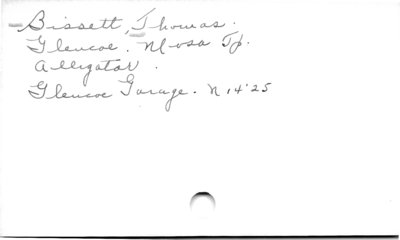 Bissett, Thomas.
Glencoe. Mosa Tp.
Alligator.
Glencoe Garage. N 14'25